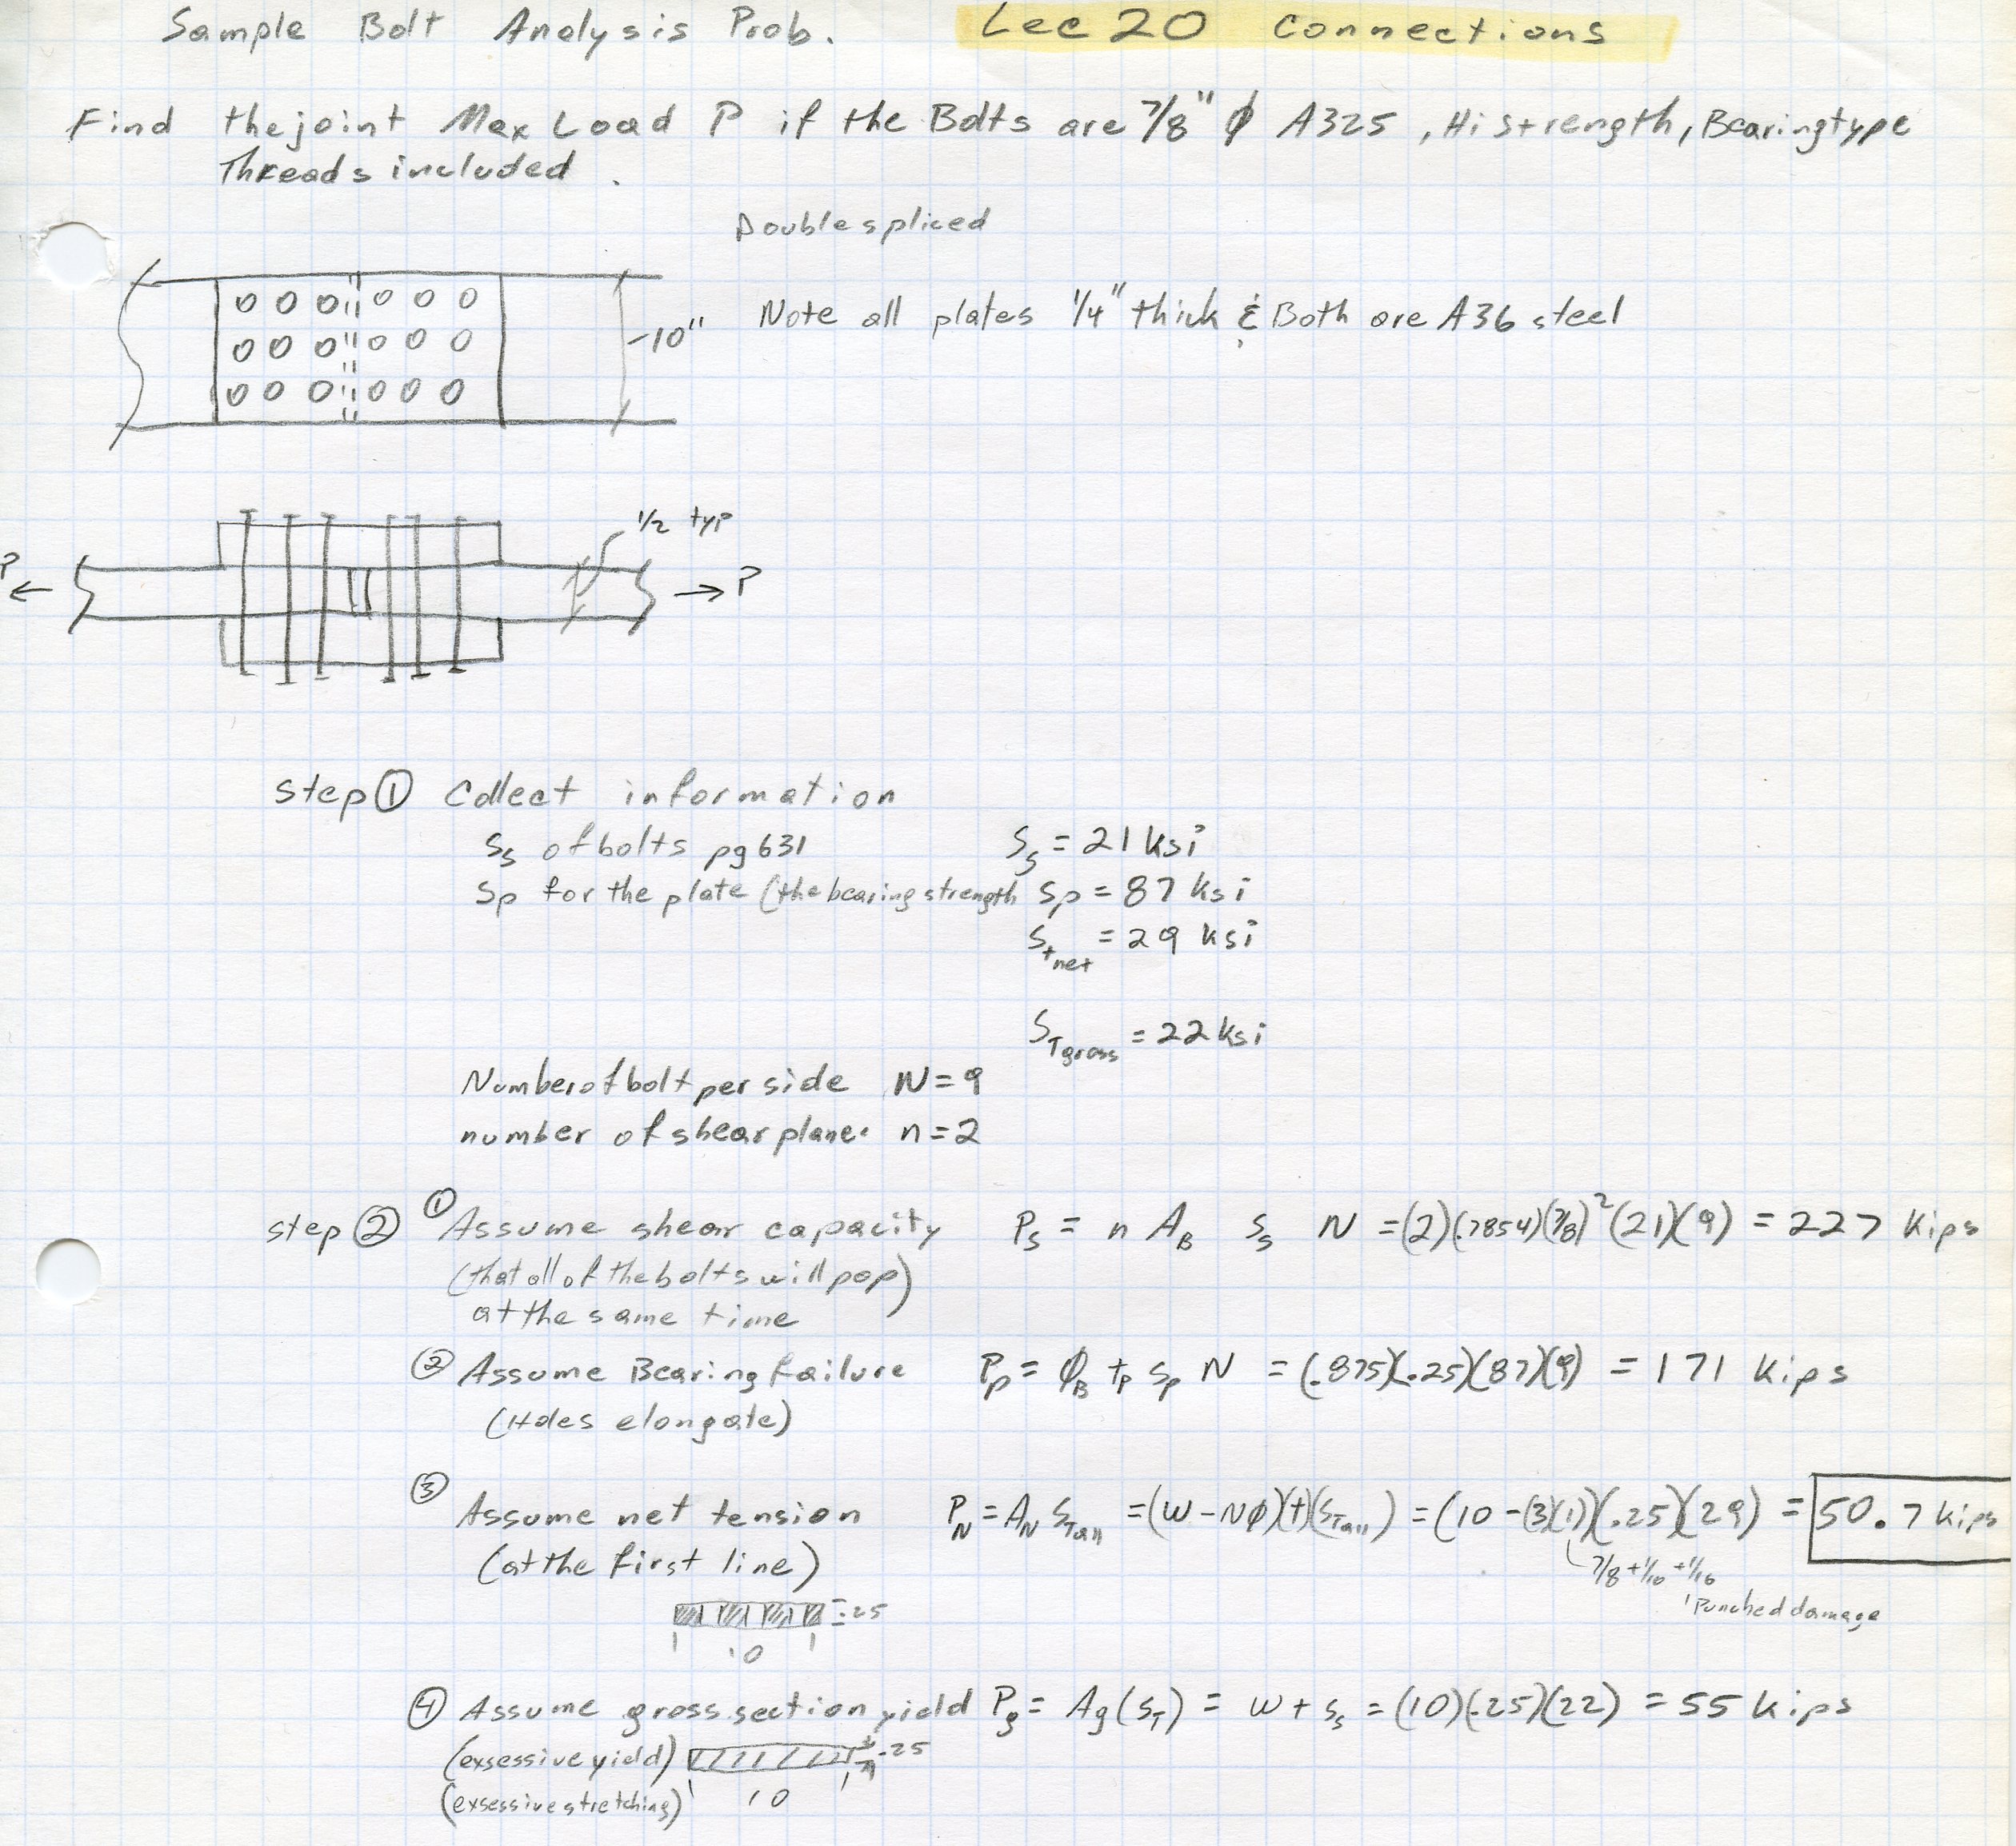 Sample Bolt Analysis Prob. Lec 20 Connections
Find the joint Max Load P if the Bolts are 7/8" ϕ A325, Hi strength, Bearing type
Threads included.
Double spliced
Note all plates 1/4" thick & Both are A36 steel
10"
1/2 typ
P ← → P
step ① Collect information
Ss of bolts pg 631 Ss = 21 ksi
Sp for the plate (the bearing strength Sp = 87 ksi
St net = 29 ksi
ST gross = 22 ksi
Number of bolt per side N = 9
number of shear plane. n = 2
step ② ① Assume shear capacity Ps = n AB Ss N = (2)(.7854)(7/8)²(21)(9) = 227 Kips
(that all of the bolts will pop)
at the same time
② Assume Bearing failure Pp = ϕB tp Sp N = (.875)(.25)(87)(9) = 171 Kips
(Holes elongate)
③ Assume net tension PN = AN STall = (W-Nϕ)(t)(STall) = (10-(3)(1))(.25)(29) = 50.7 kips
(at the first line) 7/8 + 1/16 + 1/16
Punched damage
.25
10
④ Assume gross section yield Pg = Ag(ST) = w t Ss = (10)(.25)(22) = 55 kips
(exsessive yield) .25
(exsessive stretching) 10